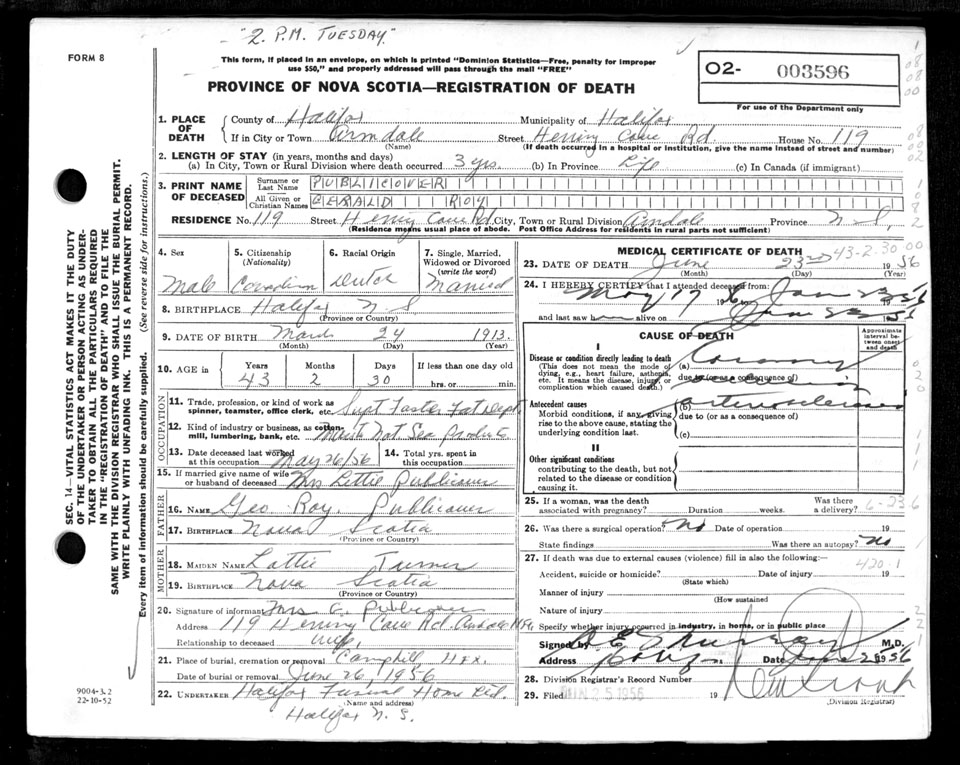 "2. P.M. TUESDAY."
FORM 8
This form, if placed in an envelope, on which is printed "Dominion Statistics—Free, penalty for improper
use $50," and properly addressed will pass through the mail "FREE"
O2- 003596
For use of the Department only
PROVINCE OF NOVA SCOTIA—REGISTRATION OF DEATH
1. PLACE OF DEATH
County of Halifax Municipality of Halifax
If in City or Town Armdale Street Herring Cove Rd. House No. 119
(Name) (If death occurred in a hospital or institution, give the name instead of street and number)
2. LENGTH OF STAY (in years, months and days)
(a) In City, Town or Rural Division where death occurred 3 yrs. (b) In Province Life (c) In Canada (if immigrant)
3. PRINT NAME OF DECEASED
Surname or Last Name PUBLICOVER
All Given or Christian Names GERALD ROY
RESIDENCE No. 119 Street Herring Cove Rd. City, Town or Rural Division Armdale Province N.S.
(Residence means usual place of abode. Post Office Address for residents in rural parts not sufficient)
4. Sex
Male
5. Citizenship
(Nationality)
Canadian
6. Racial Origin
Dutch
7. Single, Married, Widowed or Divorced
(write the word)
Married
8. BIRTHPLACE Halifax N S
(Province or Country)
9. DATE OF BIRTH March 24 1913.
(Month) (Day) (Year)
10. AGE in
Years Months Days If less than one day old
43 2 30 hrs. or min.
OCCUPATION
11. Trade, profession, or kind of work as
spinner, teamster, office clerk, etc. Supt
12. Kind of industry or business, as cotton-
mill, lumbering, bank, etc. Nat Sea Products
13. Date deceased last worked
at this occupation May 26/56
14. Total yrs. spent in
this occupation
15. If married give name of wife
or husband of deceased Mrs Lottie Publicover
FATHER
16. NAME Geo Roy Publicover
17. BIRTHPLACE Nova Scotia
(Province or Country)
MOTHER
18. MAIDEN NAME Lottie Turner
19. BIRTHPLACE Nova Scotia
(Province or Country)
20. Signature of informant Mrs G. Publicover
Address 119 Herring Cove Rd. Armdale
Relationship to deceased Wife
21. Place of burial, cremation or removal Camphill Hfx.
Date of burial or removal June 26, 1956
22. UNDERTAKER Halifax Funeral Home Ltd.
(Name and address)
Halifax N. S.
MEDICAL CERTIFICATE OF DEATH
43-2-30
23. DATE OF DEATH June 23rd 1956
(Month) (Day) (Year)
24. I HEREBY CERTIFY that I attended deceased from:
May 17
and last saw h alive on
CAUSE OF DEATH
Approximate interval between onset and death
I
Disease or condition directly leading to death
(This does not mean the mode of
dying, e.g., heart failure, asthenia,
etc. It means the disease, injury, or
complication which caused death.)
(a) Coronary
due to (or as a consequence of)
Antecedent causes
Morbid conditions, if any, giving
rise to the above cause, stating the
underlying condition last.
(b) arteriosclerosis
due to (or as a consequence of)
(c)
II
Other significant conditions
contributing to the death, but not
related to the disease or condition
causing it.
25. If a woman, was the death
associated with pregnancy? Duration weeks. Was there a delivery?
6-23-6
26. Was there a surgical operation? No Date of operation 19
State findings Was there an autopsy? No
27. If death was due to external causes (violence) fill in also the following:—
420-1
Accident, suicide or homicide? Date of injury 19
(State which)
Manner of injury
(How sustained
Nature of injury
Specify whether injury occurred in industry, in home, or in public place
Signed by M.D.
Address Date 1956
28. Division Registrar's Record Number
29. Filed JUN 25 1956 19
(Division Registrar)
SEC. 14—VITAL STATISTICS ACT MAKES IT THE DUTY
OF THE UNDERTAKER OR PERSON ACTING AS UNDER-
TAKER TO OBTAIN ALL THE PARTICULARS REQUIRED
IN THE "REGISTRATION OF DEATH" AND TO FILE THE
SAME WITH THE DIVISION REGISTRAR WHO SHALL ISSUE THE BURIAL PERMIT.
WRITE PLAINLY WITH UNFADING INK. THIS IS A PERMANENT RECORD.
Every item of information should be carefully supplied. (See reverse side for instructions.)
9004-3.2
22-10-52